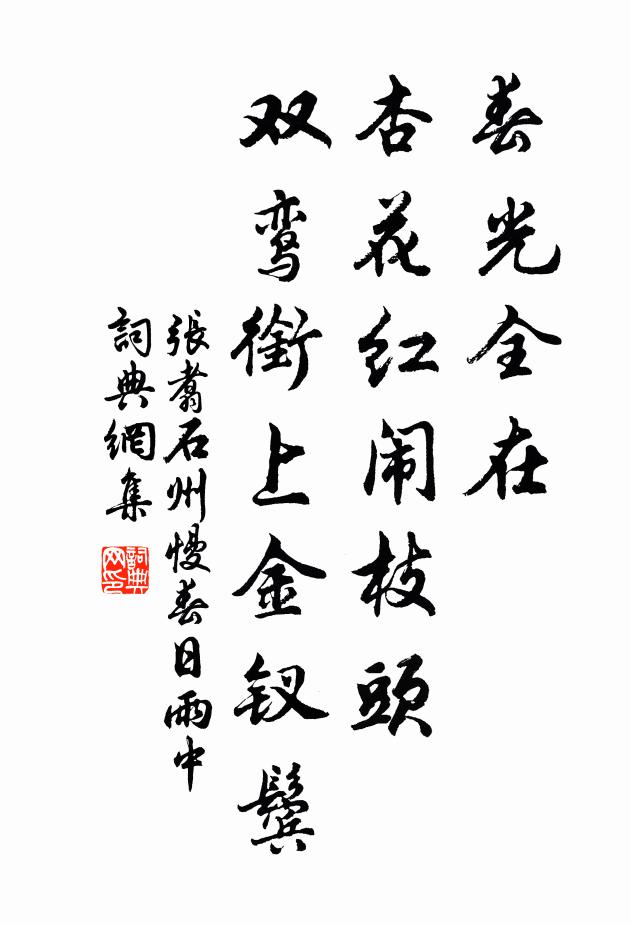 春光全在
杏花红闹枝頭
双鸾銜上金钗鬓
張翥石州慢春日雨中
詞典網集
詞典网印